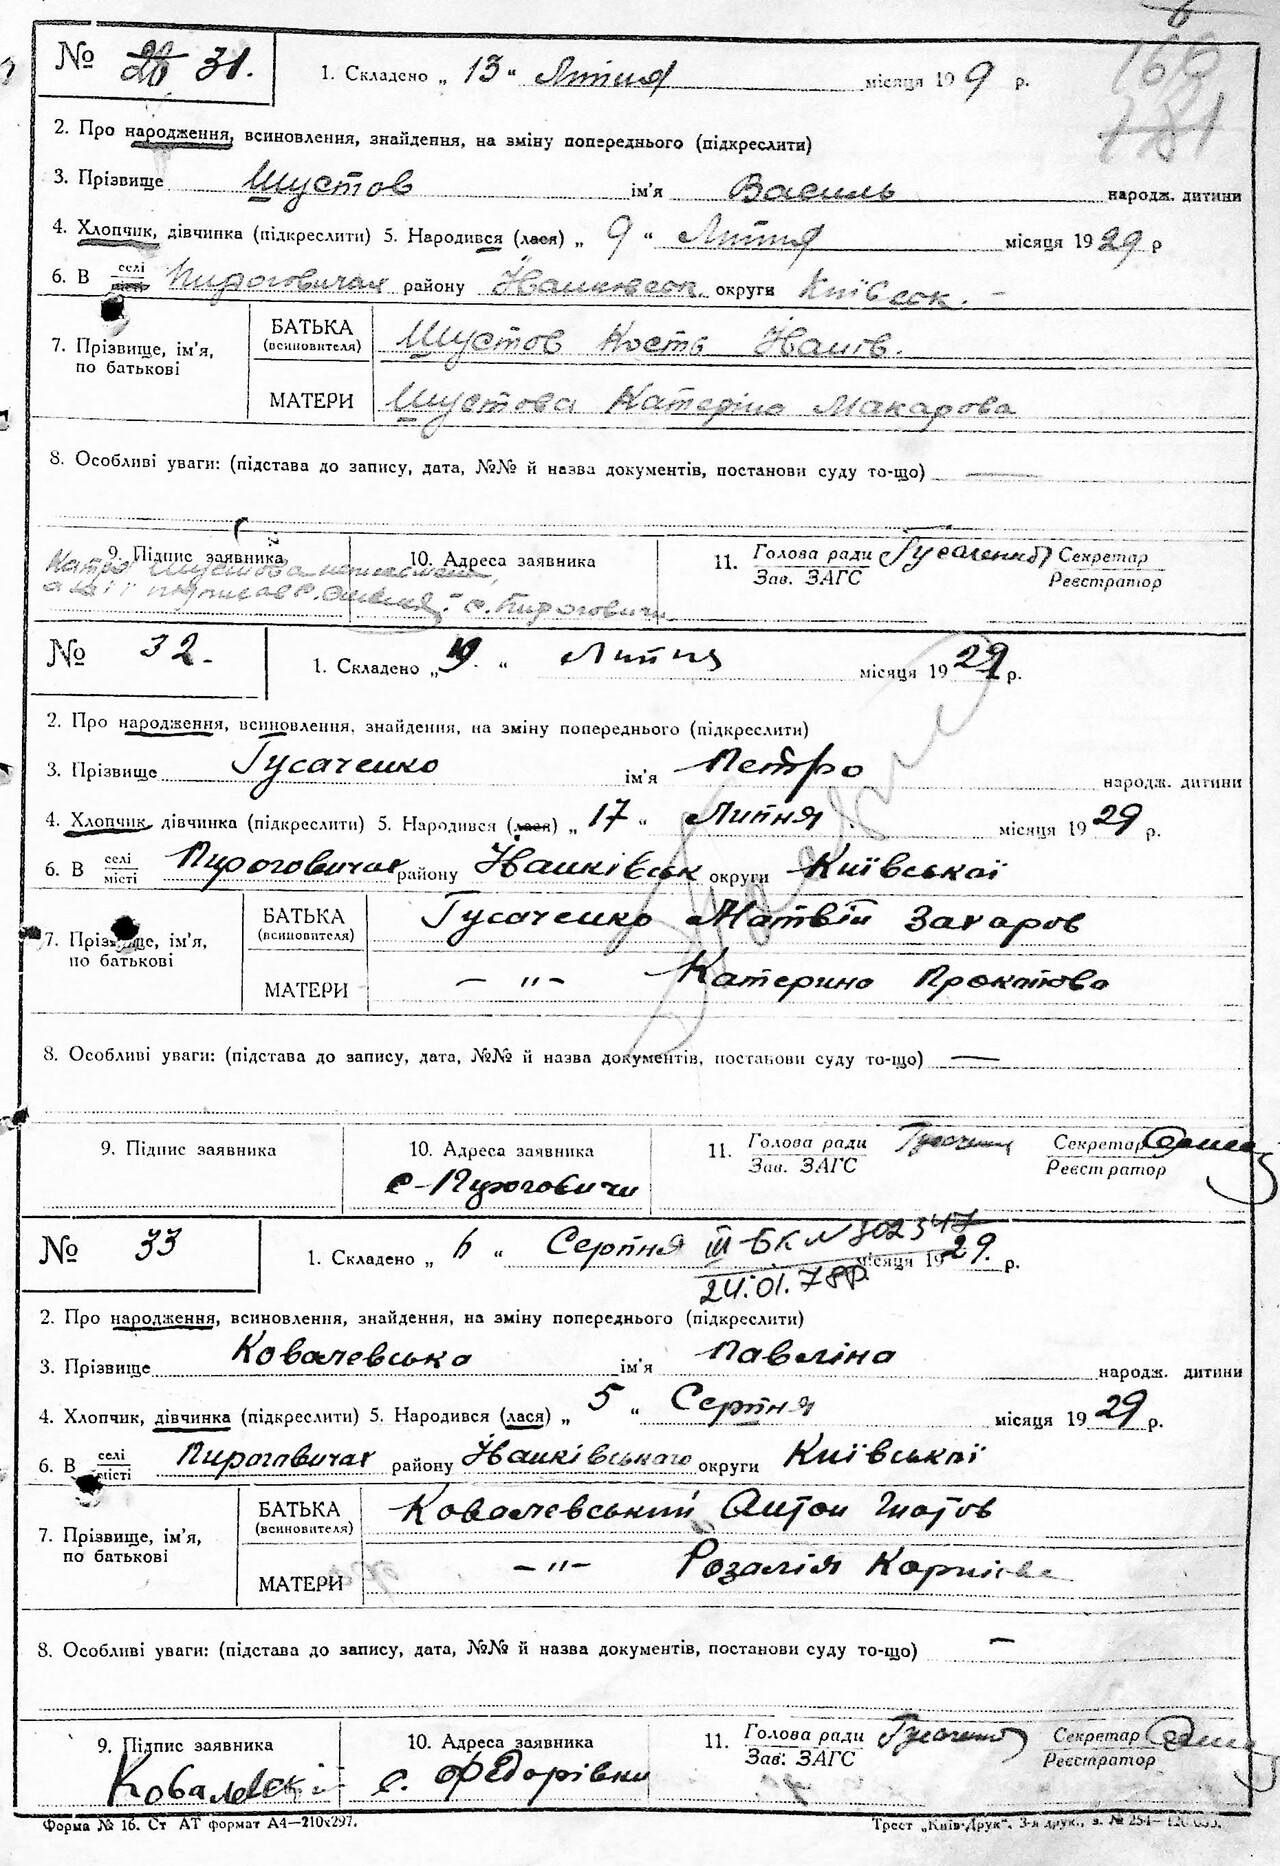 № 28 31.
1. Складено „ 13 " Липня місяця 19 9 р.
166
181
2. Про народження, всиновлення, знайдення, на зміну попереднього (підкреслити)
3. Прізвище Шустов ім'я Василь народж. дитини
4. Хлопчик, дівчинка (підкреслити) 5. Народився (лася) „ 9 " Липня місяця 19 29 р
6. В селі місті Пироговичах району Іванковськ. округи Київськ.
7. Прізвище, ім'я, по батькові
БАТЬКА (всиновителя) Шустов Кость Іванов.
МАТЕРИ Шустова Катеріна Макарова
8. Особливі уваги: (підстава до запису, дата, №№ й назва документів, постанови суду то-що) —
9. Підпис заявника 10. Адреса заявника 11. Голова ради Гусаченко Секретар
Зав. ЗАГС Реєстратор
Шустова
с. Пироговичи
№ 32.
1. Складено „ 19 " Липня місяця 19 29 р.
2. Про народження, всиновлення, знайдення, на зміну попереднього (підкреслити)
3. Прізвище Гусаченко ім'я Петро народж. дитини
4. Хлопчик, дівчинка (підкреслити) 5. Народився (лася) „ 17 " Липня місяця 19 29 р.
6. В селі місті Пироговичах району Іванківськ округи Київської
7. Прізвище, ім'я, по батькові
БАТЬКА (всиновителя) Гусаченко Матвій Захаров
МАТЕРИ — „ — Катерина
8. Особливі уваги: (підстава до запису, дата, №№ й назва документів, постанови суду то-що) —
9. Підпис заявника 10. Адреса заявника 11. Голова ради Секретар
Зав. ЗАГС Реєстратор
с. Пироговичи
№ 33
1. Складено „ 6 " Серпня місяця 19 29. р.
III-БК № 302347
24.01.78р.
2. Про народження, всиновлення, знайдення, на зміну попереднього (підкреслити)
3. Прізвище Ковалевська ім'я Павліна народж. дитини
4. Хлопчик, дівчинка (підкреслити) 5. Народився (лася) „ 5 " Серпня місяця 19 29 р.
6. В селі місті Пироговичах району Іванківського округи Київської
7. Прізвище, ім'я, по батькові
БАТЬКА (всиновителя) Ковалевський Антон Гнатов
МАТЕРИ — „ — Розалія Корніїва
8. Особливі уваги: (підстава до запису, дата, №№ й назва документів, постанови суду то-що) —
9. Підпис заявника 10. Адреса заявника 11. Голова ради Гусаченко Секретар
Зав. ЗАГС Реєстратор
с. Федорівки
Форма № 16. Ст АТ формат А4—210х297.
Трест „Київ-Друк", 3-я друк., з. № 254—